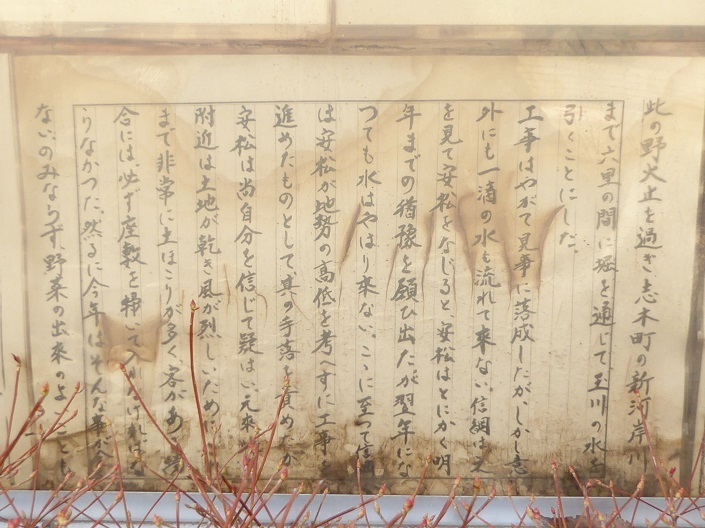 此の野火止を過ぎ、志木町の新河岸川
まで六里の間に堀を通じて、玉川の水を
引くことにした。
工事はやがて見事に落成したが、しかし意
外にも一滴の水も流れて来ない。信綱は之
を見て安松をなじると、安松はとにかく明
年までの猶豫を願ひ出たが翌年にな
つても水はやはり来ない。こゝに至つて信綱
は安松が地勢の高低を考へずに工事を
進めたものとして、其の手落を責めたが
安松は尚自分を信じて疑はい元来
附近は土地が乾き風が烈しいために
まで非常に土ほこりが多く客がある
合には、必ず座敷を掃いて入れなければ
らなかつた。然るに今年はそんな事が
ないのみならず、野菜の出来のよ